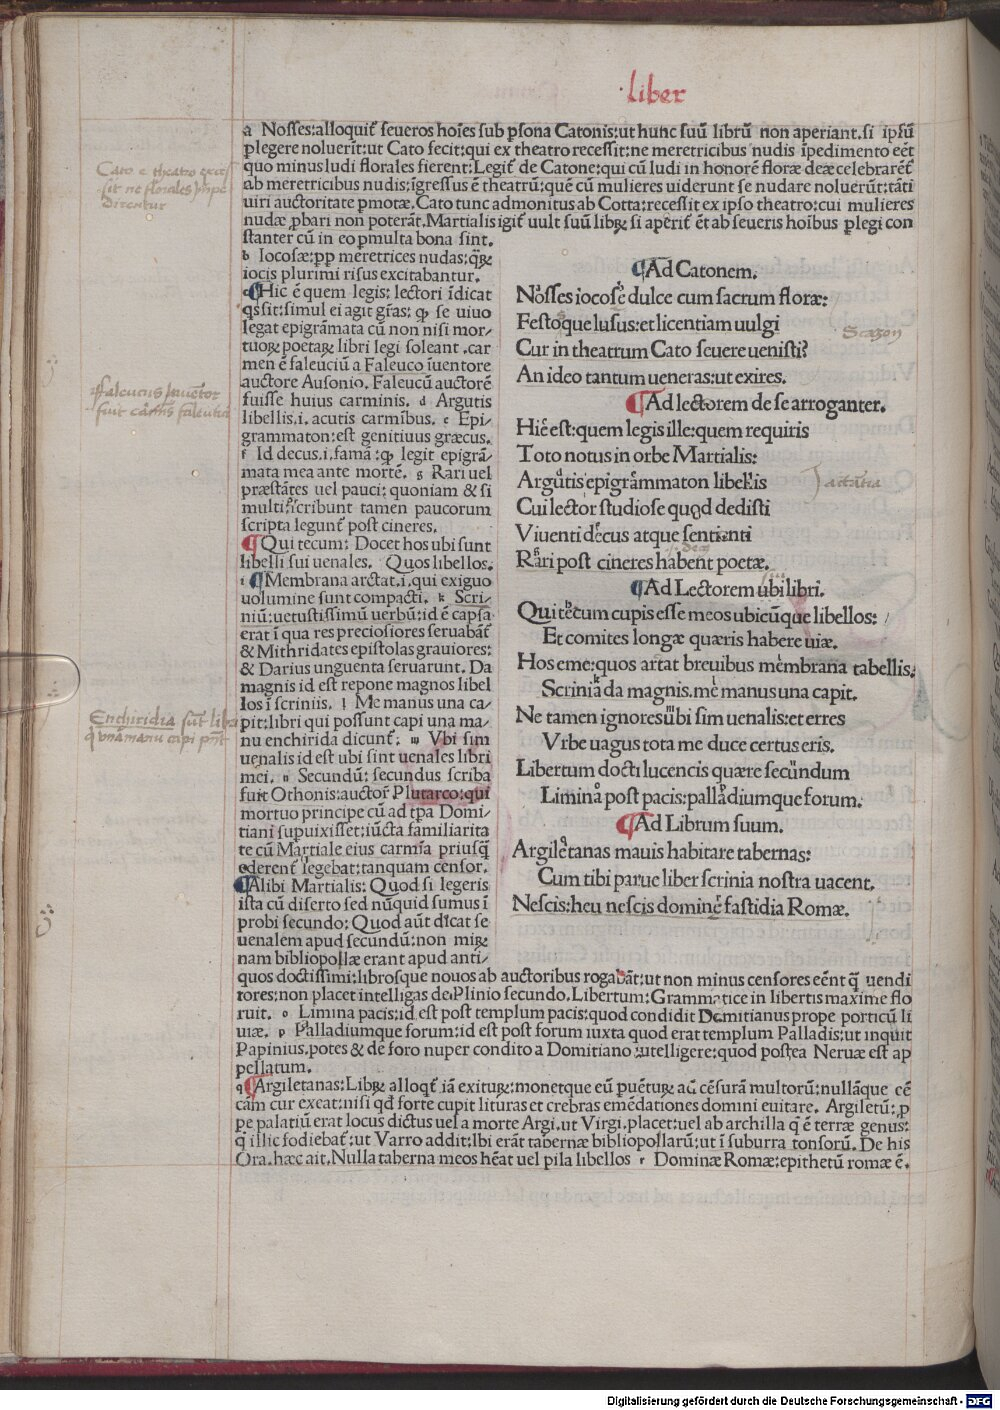 liber
a Nosses:alloquit̃ seueros hoĩes sub ꝑsona Catonis:ut hunc suũ librũ non aperiant.si ipsũ
plegere noluerĩt:ut Cato fecit:qui ex theatro recessit:ne meretricibus nudis ĩpedimento eẽt
quo minus ludi florales fierent:Legit̃ de Catone:qui cũ ludi in honorẽ floræ deæ celebrarẽt̃
ab meretricibus nudis:ĩgressus ẽ theatrũ:quẽ cũ mulieres uiderunt se nudare noluerũt:tãti
uiri auctoritate ꝑmotæ.Cato tunc admonitus ab Cotta:recessit ex ipso theatro:cui mulieres
nudæ ꝓbari non poterãt.Martialis igit̃ uult suũ librꝝ si aperit̃ ẽt ab seueris hoĩbus ꝑlegi con
stanter cũ in eo ꝑmulta bona sint.
b Iocosæ:ꝓp meretrices nudas:qꝝ
iocis plurimi risus excitabantur.
c Hic ẽ quem legis: lectori ĩdicat
qs sit:simul ei agit gr̃as: ꝙ se uiuo
legat epigrãmata cũ non nisi mor⸗
tuoꝝ poetaꝝ libri legi soleant .car
men ẽ faleuciũ a Faleuco ĩuentore
auctore Ausonio. Faleucũ auctorẽ
fuisse huius carminis. d Argutis
libellis.i. acutis carmĩbus. e Epi⸗
grammaton:est genitiuus græcus.
f Id decus.i.famã :ꝙ legit epigrã⸗
mata mea ante mortẽ. g Rari uel
præstãtes uel pauci: quoniam & si
multi scribunt tamen paucorum
scripta legunt̃ post cineres.
Qui tecum: Docet hos ubi sunt
libelli sui uenales. Quos libellos.
i Membrana arctat.i.qui exiguo
uolumine sunt compacti. k Scri⸗
niũ:uetustissimũ uerbũ:id ẽ capsa
erat ĩ qua res preciosiores seruabãt̃
& Mithridates epistolas grauiores:
& Darius unguenta seruarunt. Da
magnis id est repone magnos libel
los ĩ scriniis. l Me manus una ca⸗
pit:libri qui possunt capi una ma⸗
nu enchirida dicunt̃. m Vbi sim
uenalis id est ubi sint uenales libri
mei. n Secundũ: secundus scriba
fuit Othonis:auctor̃ Plutarco:qui
mortuo principe cũ ad tꝑa Domi⸗
tiani supuixisset:iũcta familiarita
te cũ Martiale eius carmĩa priusq̃
ederent̃ legebat:tanquam censor.
Alibi Martialis: Quod si legeris
ista cũ diserto sed nũquid sumus ĩ
probi secundo: Quod aũt dĩcat se
uenalem apud secundũ:non miꝝ
nam bibliopollæ erant apud anti⸗
quos doctissimi:librosque nouos ab auctoribus rogabãt:ut non minus censores eẽnt q̃ uendi
tores:non placet intelligas de Plinio secundo. Libertum: Grammatice in libertis maxime flo
ruit. o Limina pacis:id est post templum pacis:quod condidit Domitianus prope porticũ li
uiæ. p Palladiumque forum:id est post forum iuxta quod erat templum Palladis:ut inquit
Papinius.potes & de foro nuper condito a Domitiano ĩtelligere:quod postea Neruæ est ap
pellatum.
q Argiletanas:Libꝝ alloqt̃ iã exituꝝ:monetque eũ puẽtuꝝ ad cẽsurã multorũ:nullãque cẽ
cam cur exeat:nisi qd̃ forte cupit lituras et crebras emẽdationes domini euitare. Argiletũ:ꝓ
pe palatiũ erat locus dictus uel a morte Argi.ut Virgi.placet:uel ab archilla q̃ ẽ terræ genus:
q̃ illic fodiebat̃:ut Varro addit:Ibi erãt tabernæ bibliopollarũ:ut ĩ suburra tonsorũ. De his
Ora.hæc ait.Nulla taberna meos hẽat uel pila libellos r Dominæ Romæ:epithetũ romæ ẽ.
Ad Catonem.
Nosses iocosẽ dulce cum sacrum floræ:
Festoque lusus:et licentiam uulgi
Cur in theatrum Cato seuere uenisti?
An ideo tantum ueneras:ut exires.
Ad lectorem de se arroganter.
Hic est:quem legis ille:quem requiris
Toto notus in orbe Martialis:
Argutis epigrammaton libellis
Cui lector studiose quod dedisti
Viuenti decus atque sentienti
Rari post cineres habent poetæ.
Ad Lectorem ubi libri.
Qui tecum cupis esse meos ubicunque libellos:
Et comites longæ quæris habere uiæ.
Hos eme:quos artat breuibus membrana tabellis:
Scrinia da magnis.me manus una capit.
Ne tamen ignores ubi sim uenalis:et erres
Vrbe uagus tota me duce certus eris.
Libertum docti lucencis quære secundum
Limina post pacis:palladiumque forum.
Ad Librum suum.
Argiletanas mauis habitare tabernas:
Cum tibi parue liber scrinia nostra uacent.
Nescis:heu nescis dominę fastidia Romæ.
Cato e theatro exces
sit ne florales impe
direntur
Faleucus inuẽtor
fuit carminis faleutii
Enchiridia sunt libri
q̃ una manu capi pñt
Scazon
Jactantia
Digitalisierung gefördert durch die Deutsche Forschungsgemeinschaft - DFG